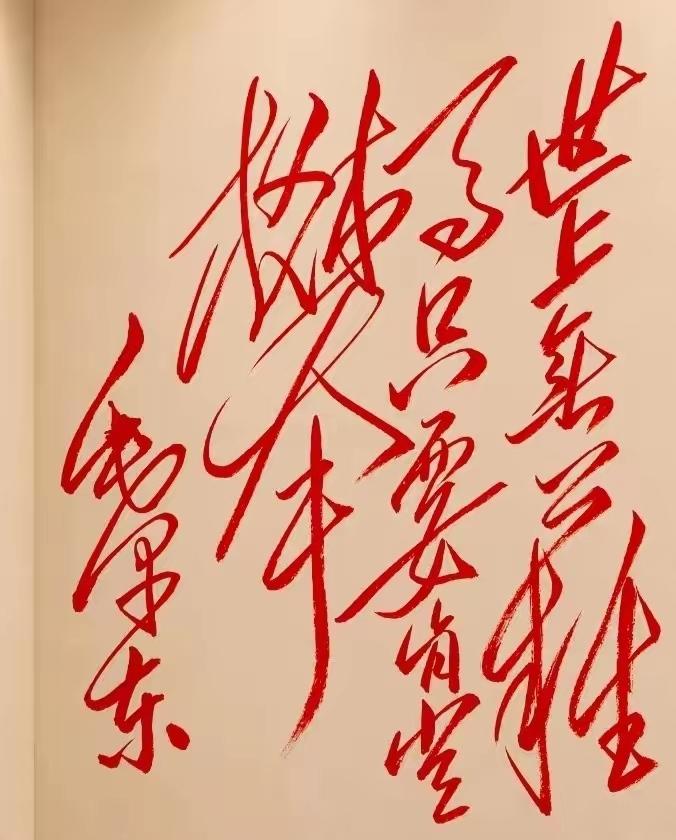 世上無難
事只要肯登
攀
毛泽东